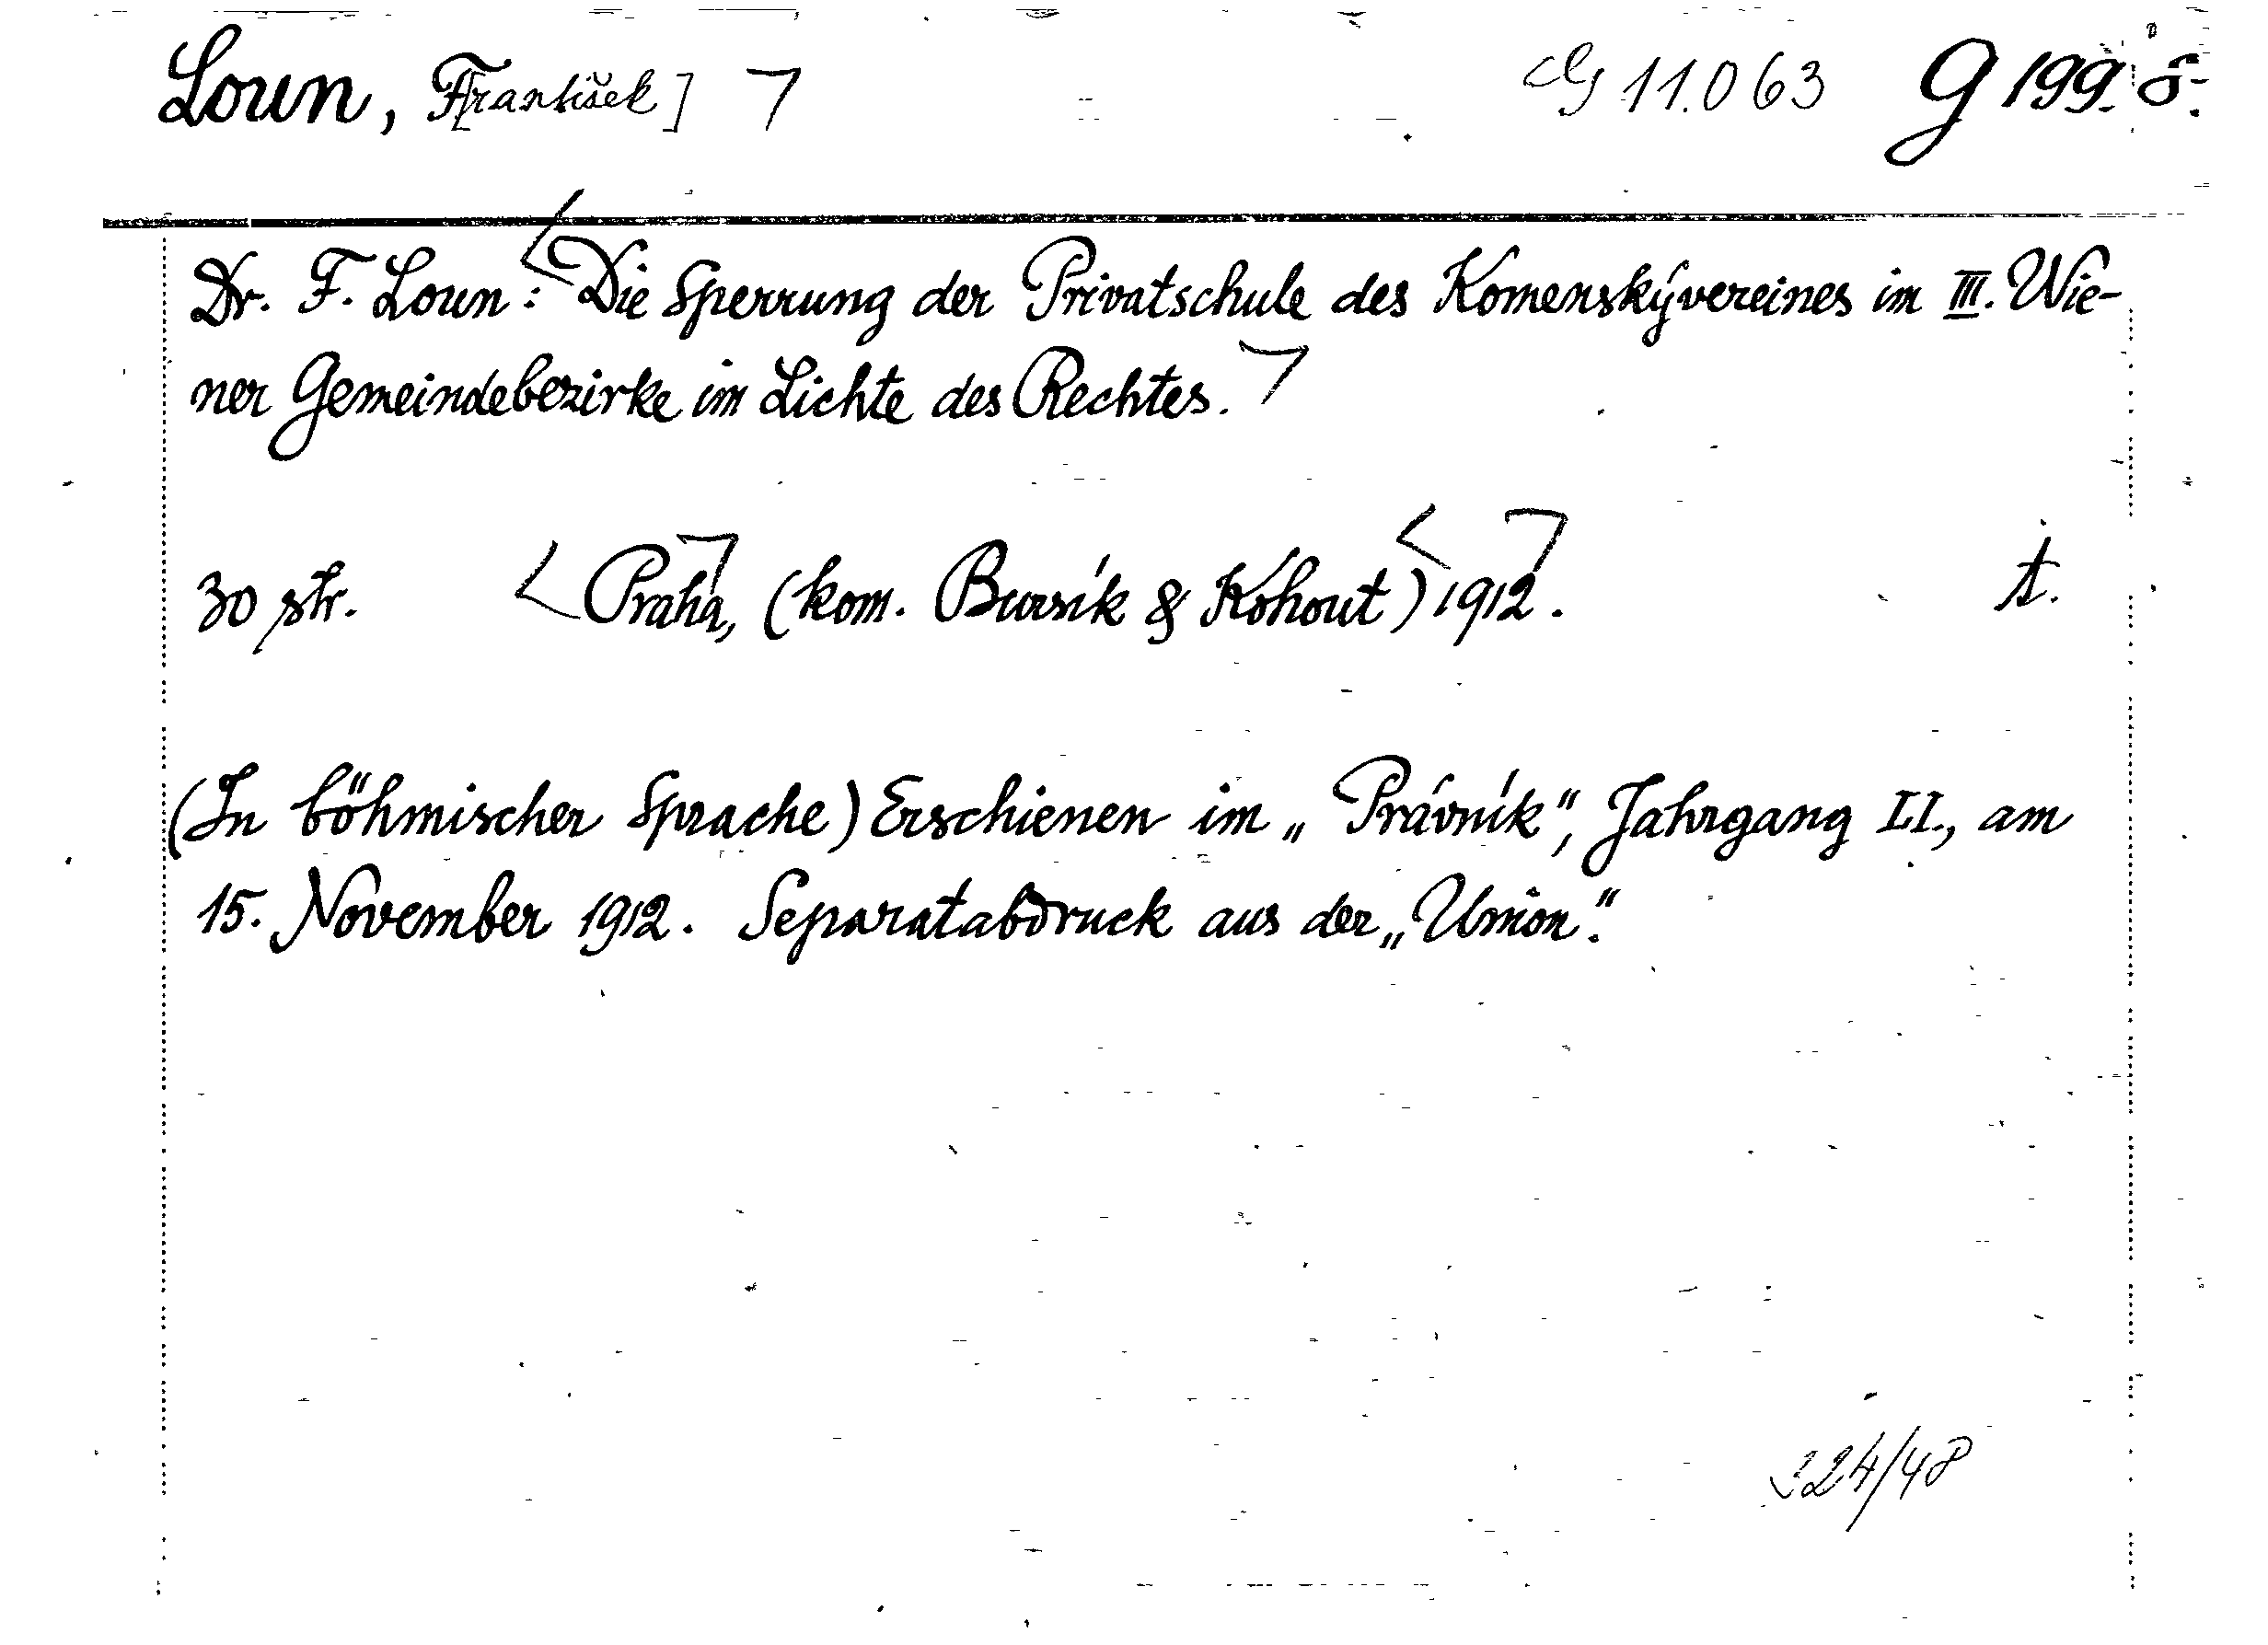 Loun, F[rantišek] G 11.063 G 199. 8.
Dr. F. Loun: Die Sperrung der Privatschule des Komenskývereines im III. Wie-
ner Gemeindebezirke im Lichte des Rechtes.
30 str. Praha, (kom. Bursík & Kohout) 1912. t.
(In böhmischer Sprache) Erschienen im „Právník“, Jahrgang LI., am
15. November 1912. Separatabdruck aus der „Union“.
224/48